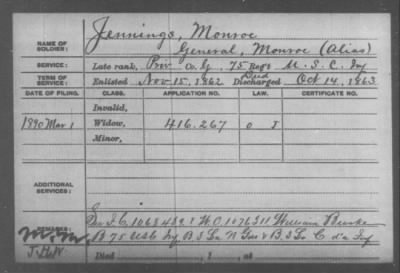 NAME OF SOLDIER: Jennings, Monroe
General, Monroe (Alias)
SERVICE: Late rank, Priv Co. G, 75 Reg't U. S. C. Inf
TERM OF SERVICE: Enlisted Nov 15, 1862 Died Discharged Oct 14, 1863
DATE OF FILING. CLASS. APPLICATION NO. LAW. CERTIFICATE NO.
Invalid,
1890 Mar 1 Widow, 416.267
Minor,
ADDITIONAL SERVICES:
REMARKS: See I.C. 1068439 & W.O. 1076311 William Burke
B 75 USC Inf B 3 La N Gds & B, 3 La C d'a Inf
J.H.W. Died , 1 , at